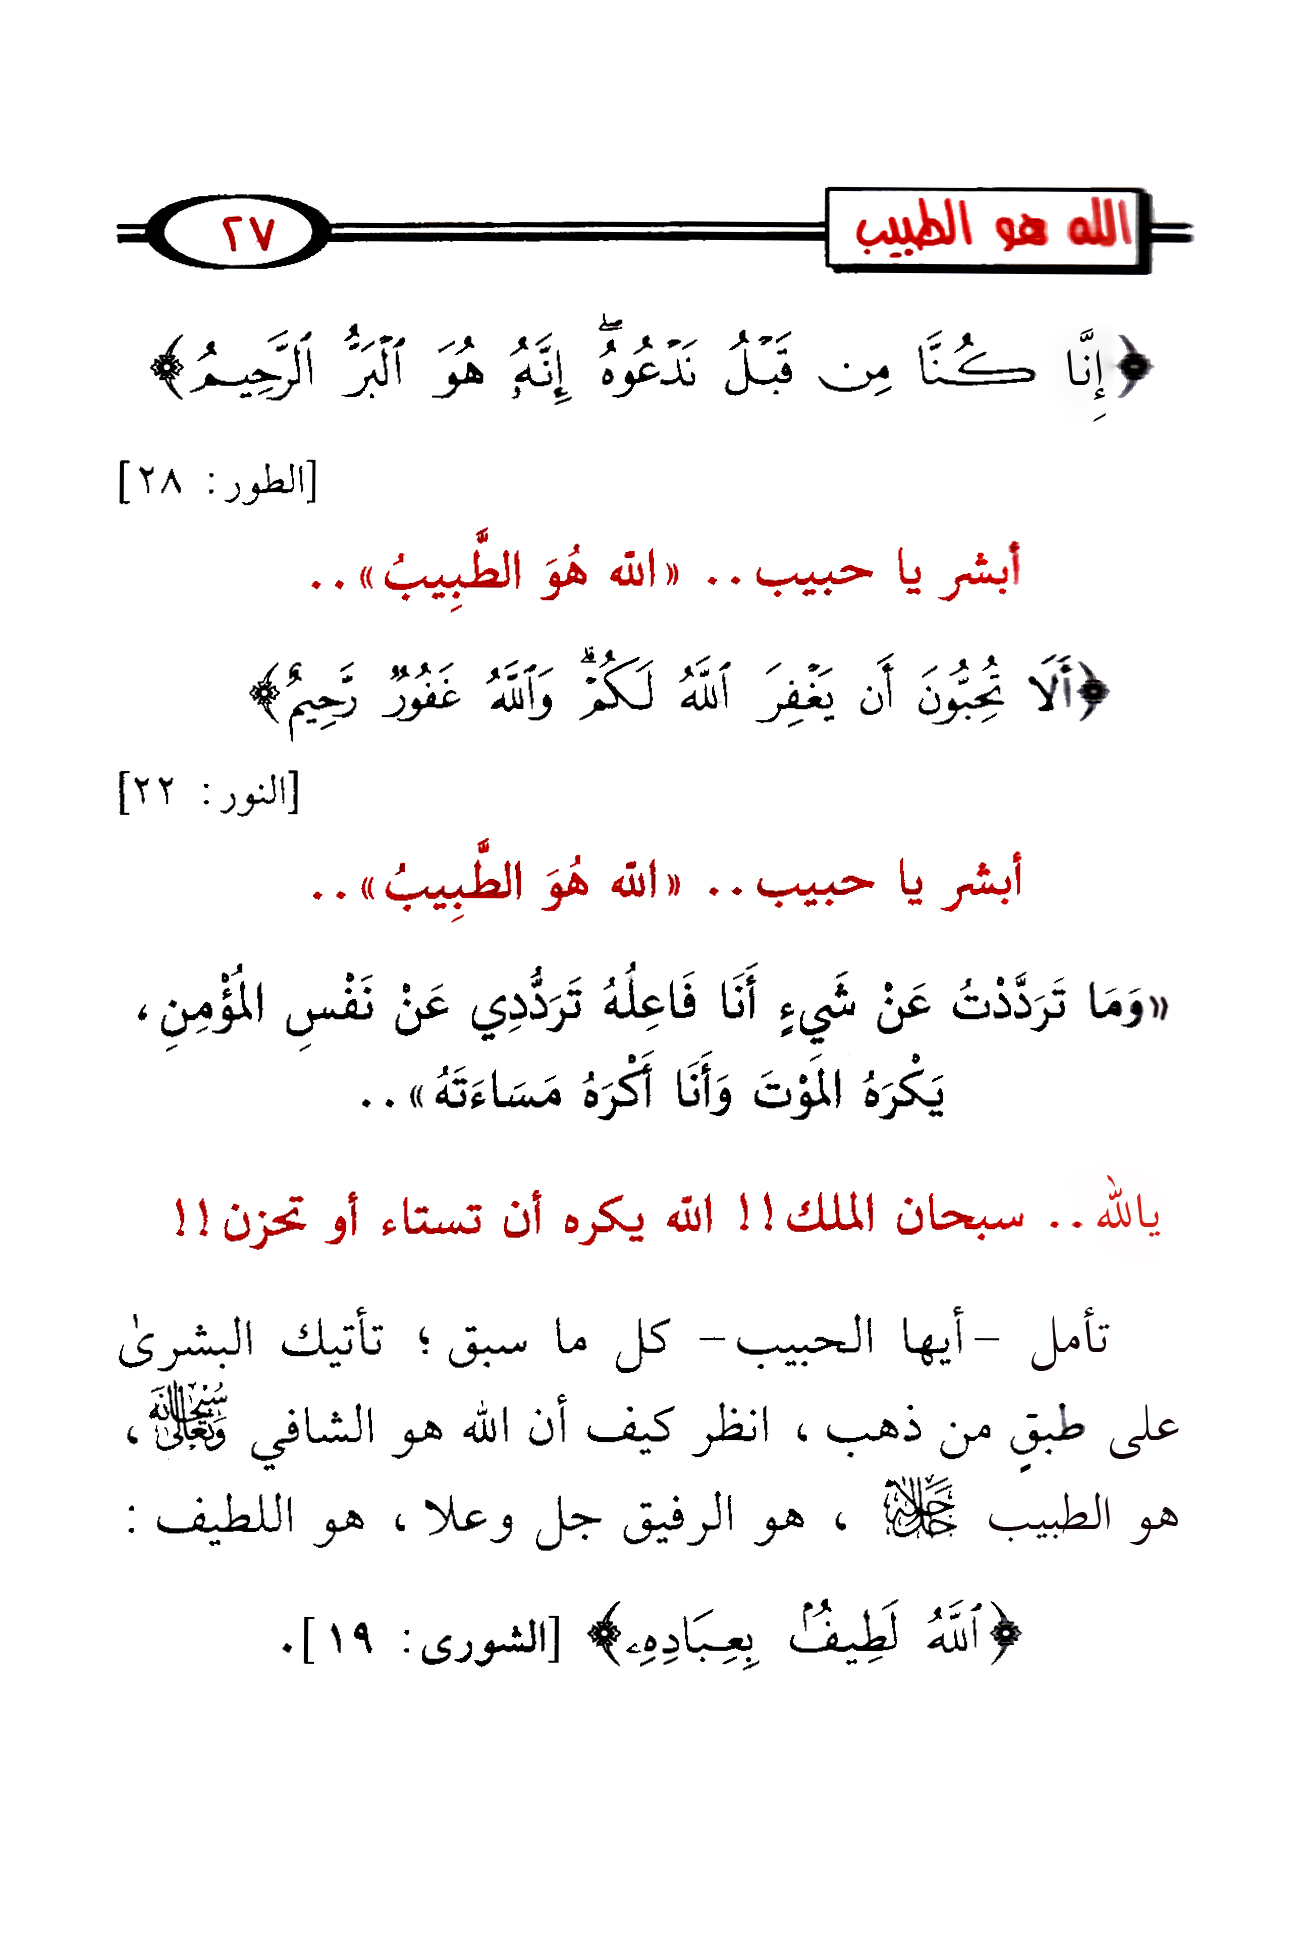 الله هو الطبيب ٢٧
﴿إِنَّا كُنَّا مِن قَبْلُ نَدْعُوهُ ۖ إِنَّهُۥ هُوَ ٱلْبَرُّ ٱلرَّحِيمُ﴾
[الطور: ٢٨]
أبشر يا حبيب.. «الله هُوَ الطَّبِيبُ»..
﴿أَلَا تُحِبُّونَ أَن يَغْفِرَ ٱللَّهُ لَكُمْ ۗ وَٱللَّهُ غَفُورٌ رَّحِيمٌ﴾
[النور: ٢٢]
أبشر يا حبيب.. «الله هُوَ الطَّبِيبُ»..
«وَمَا تَرَدَّدْتُ عَنْ شَيءٍ أَنَا فَاعِلُهُ تَرَدُّدِي عَنْ نَفْسِ المُؤْمِنِ،
يَكْرَهُ المَوْتَ وَأَنَا أَكْرَهُ مَسَاءَتَهُ»..
يالله.. سبحان الملك!! الله يكره أن تستاء أو تحزن!!
تأمل –أيها الحبيب– كل ما سبق؛ تأتيك البشرىٰ
على طبقٍ من ذهب، انظر كيف أن الله هو الشافي سُبْحَانَهُ وَتَعَالَىٰ،
هو الطبيب جَلَّ جَلَالُهُ، هو الرفيق جل وعلا، هو اللطيف:
﴿ٱللَّهُ لَطِيفٌۢ بِعِبَادِهِۦ﴾ [الشورى: ١٩].